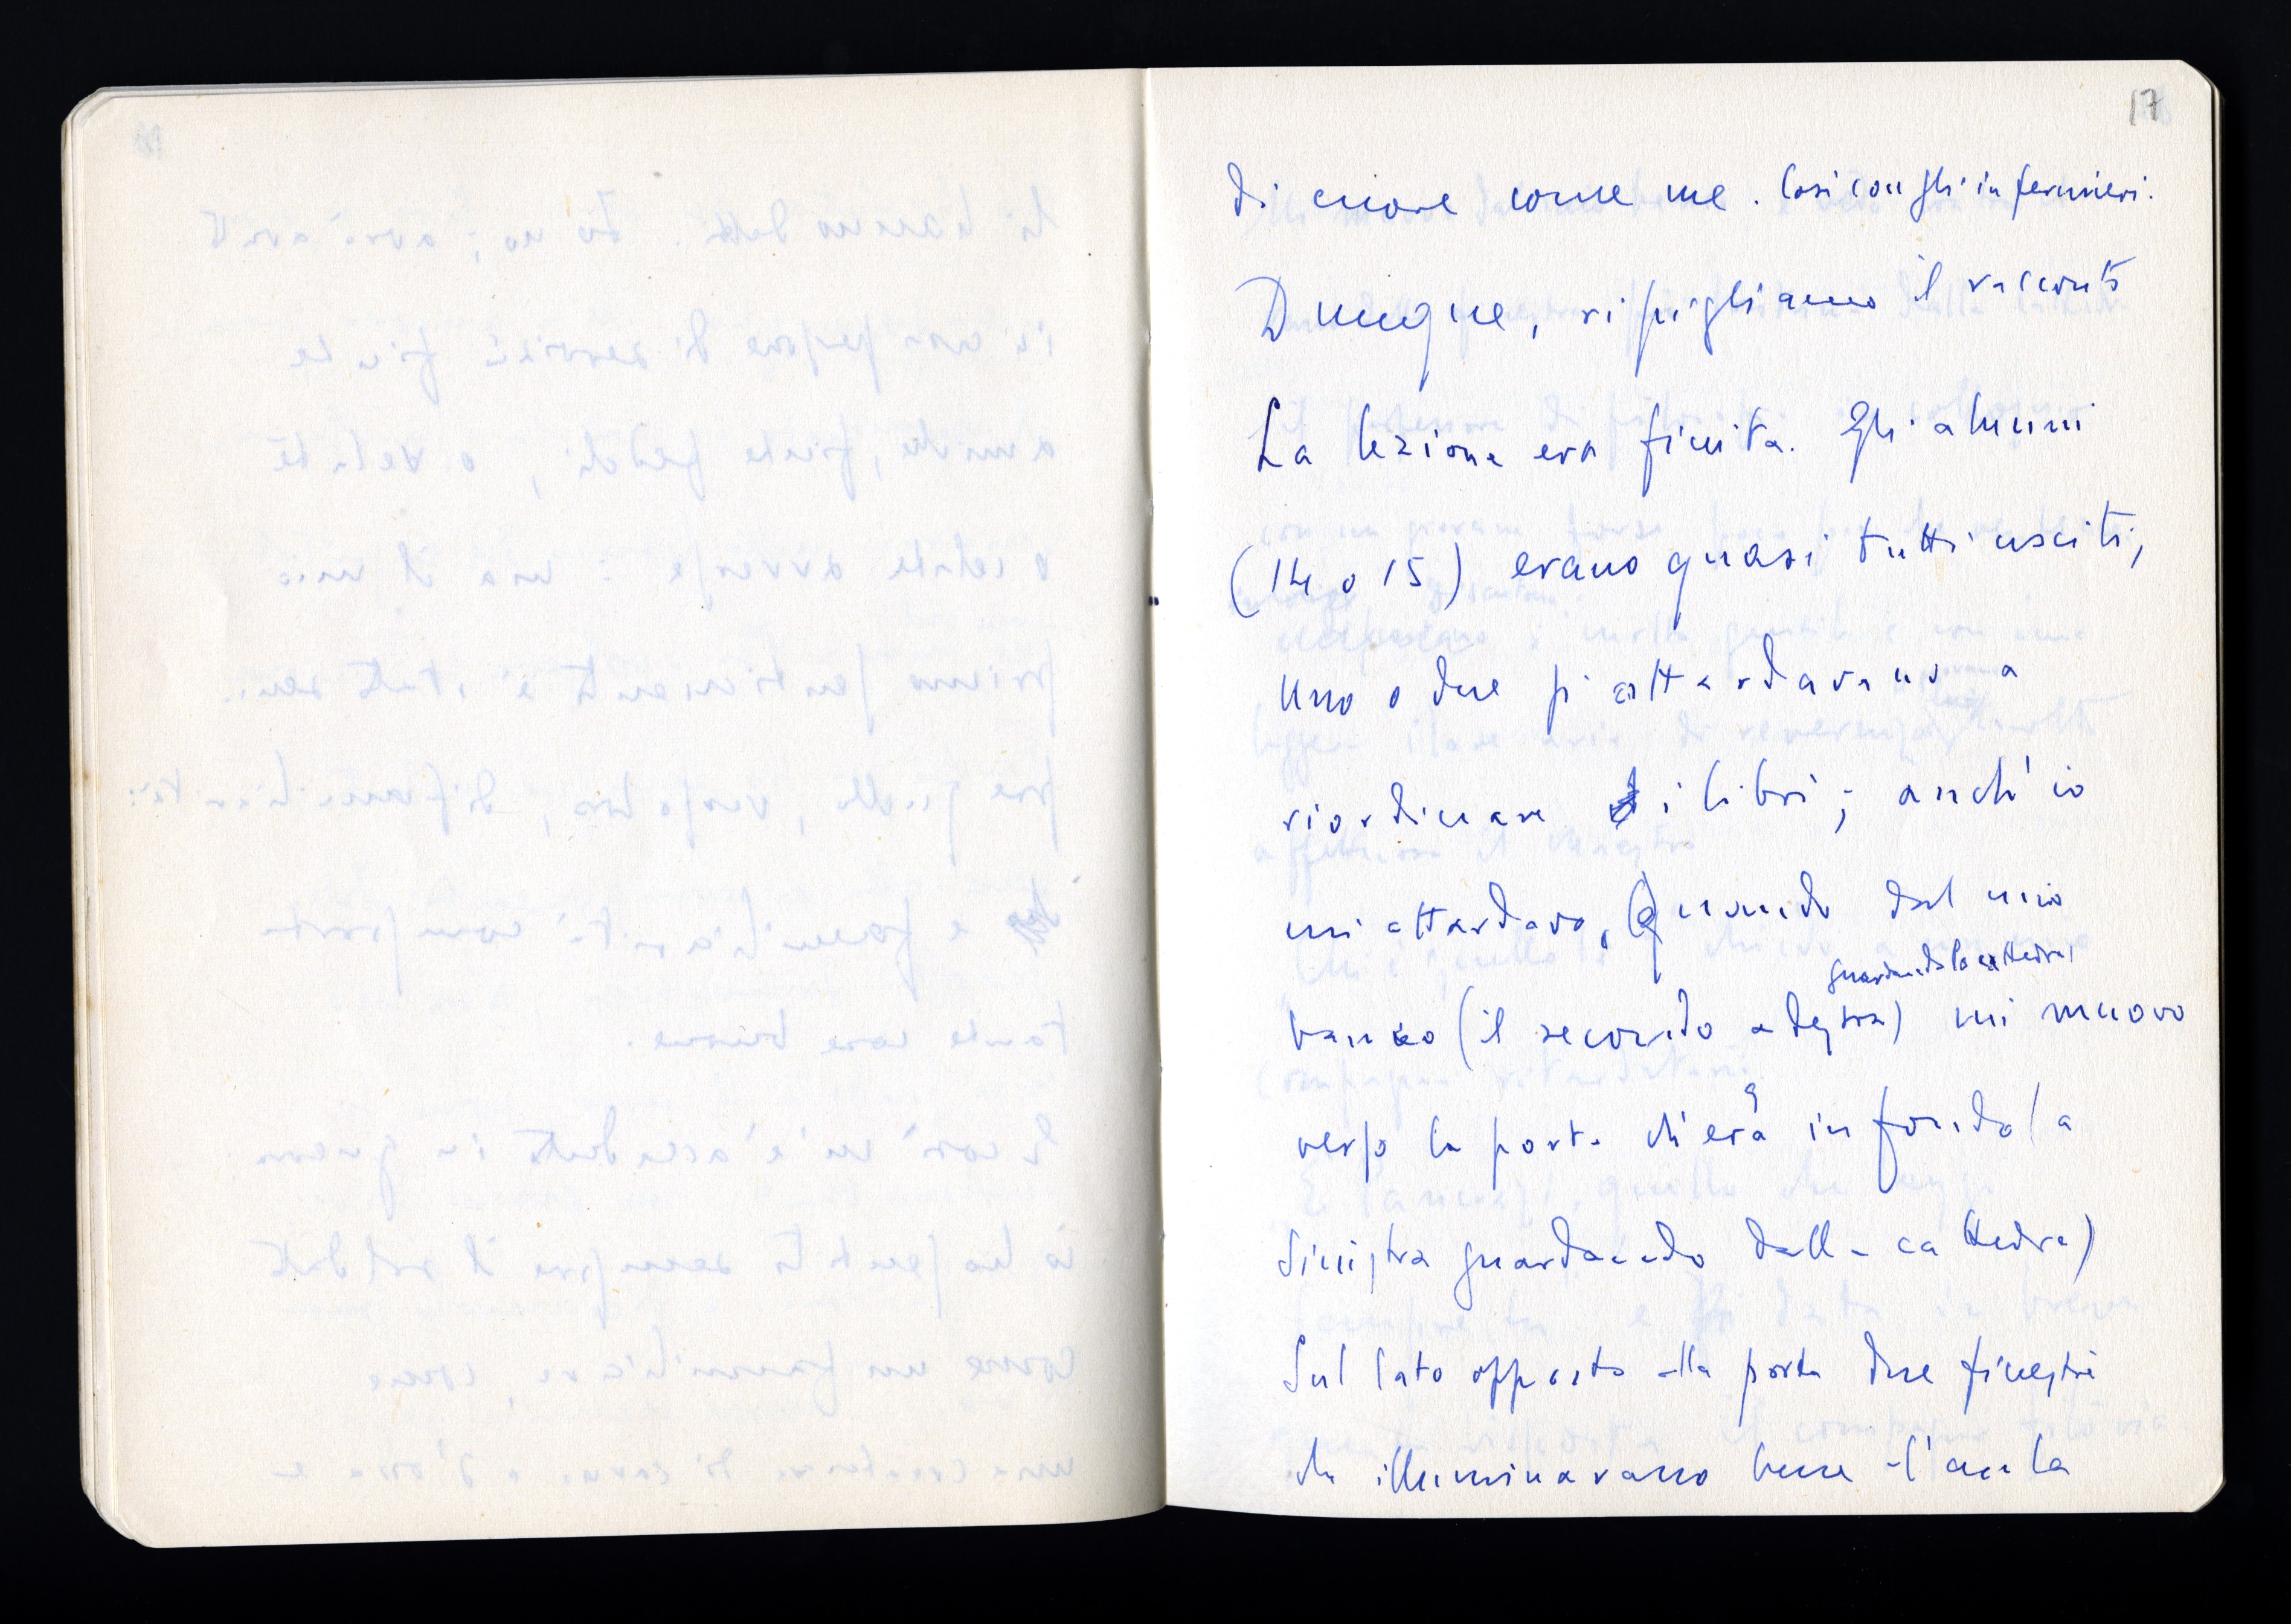 17
di cuore come me. Così con gli infermieri.
Dunque, ripigliamo il racconto
La lezione era finita. Gli alunni
(14 o 15) erano quasi tutti usciti;
uno o due si attardavano a
riordinare i libri; anch'io
mi attardavo, Quando dal mio
guardando la cattedra
banco (il secondo a destra) mi muovo
verso la porta ch'era in fondo (a
sinistra guardando dalla cattedra)
Sul lato opposto alla porta due finestre
che illuminavano bene l'aula